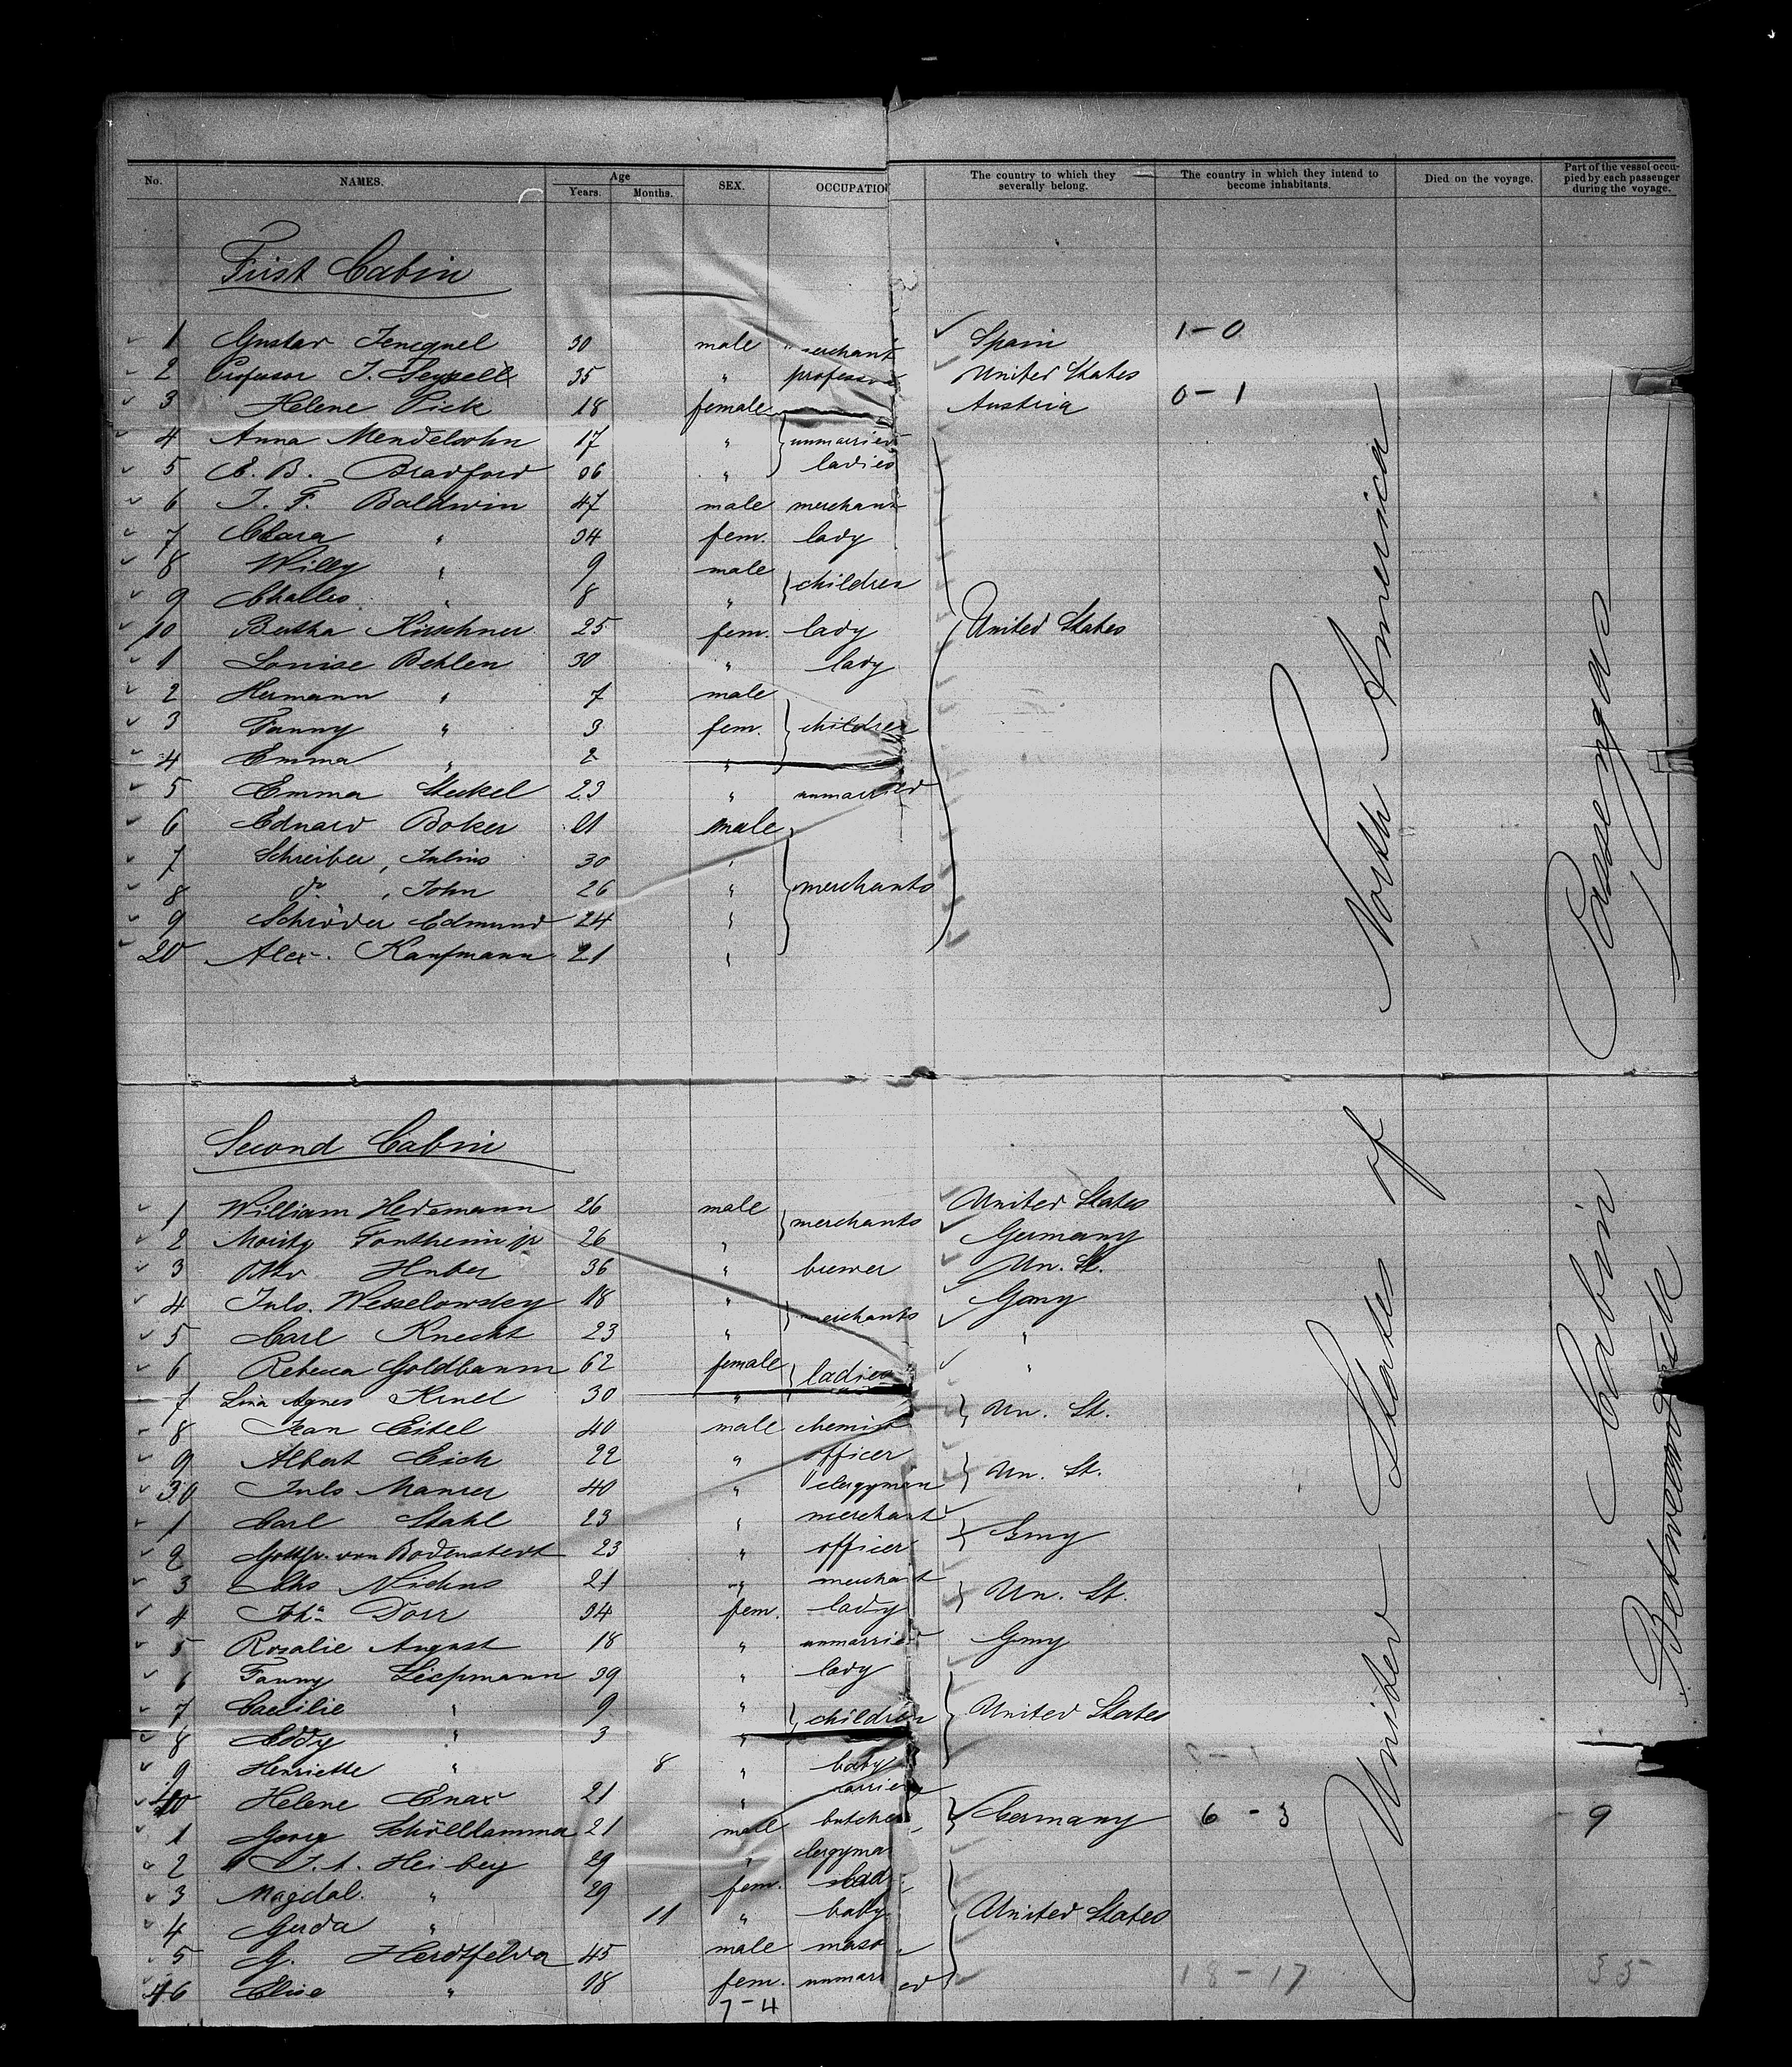 No. NAMES. Age Years. Months. SEX. OCCUPATION The country to which they severally belong. The country in which they intend to become inhabitants. Died on the voyage. Part of the vessel occupied by each passenger during the voyage.
First Cabin
1 Gustav Jencquel 30 male merchant Spain 1-0
2 Professor J. 35 " professor United States
3 Helene Pick 18 female Austria 0-1
4 Anna Mendelsohn 17 " unmarried
5 E. B. Bradford 36 " ladies
6 J. F. Baldwin 47 male merchant
7 Clara " 34 fem. lady
8 Willy " 9 male children
9 Challes " 8 "
10 Bertha Kirschner 25 fem. lady United States
1 Louise Behlen 30 " lady
2 Hermann " 7 male
3 Fanny " 3 fem. children
4 Emma " 2 "
5 Emma Steckel 23 " unmarried
6 Eduard Boker 21 male
7 Schreiber, Julius 30 "
8 do, John 26 " merchants
9 Schröder Edmund 24 "
20 Alex. Kaufmann 21 "
Second Cabin
1 William Hedemann 26 male merchants United States
2 Moritz Fontheim jr 26 " Germany
3 Otto Huber 36 " brewer Un. St.
4 Juls. Wesselowsky 18 " merchants Gmny
5 Carl Knecht 23 " "
6 Rebecca Goldbaum 62 female ladies "
7 Lina Agnes 30 " Un. St.
8 Jean Eitel 40 male chemist
9 Albert Eich 22 " officer Un. St.
30 Juls Manser 40 " clergyman
1 Carl Stahl 23 " merchant Gmy
2 Gottfr. von Bodenstedt 23 " officer
3 Chs Niehus 21 " merchant Un. St.
4 Joha Dorr 34 fem. lady
5 Rosalie August 18 " unmarried Gmy
6 Fanny Liepmann 39 " lady
7 Caecilie " 9 " children United States
8 Eddy " 3 "
9 Henriette " 8 " baby
40 Helene Enax 21 " married Germany 6-3 9
1 Georg Schöllhammer 21 male butcher
2 J. A. Heiberg 29 " clergyma
3 Magdal. " 29 fem. lad
4 Gerda " 11 " baby United States
5 G. Herdtfelder 45 male maso
46 Elise " 18 fem. unmarried 18-17 35
7-4
United States of North America
Cabin Passengers
Between deck